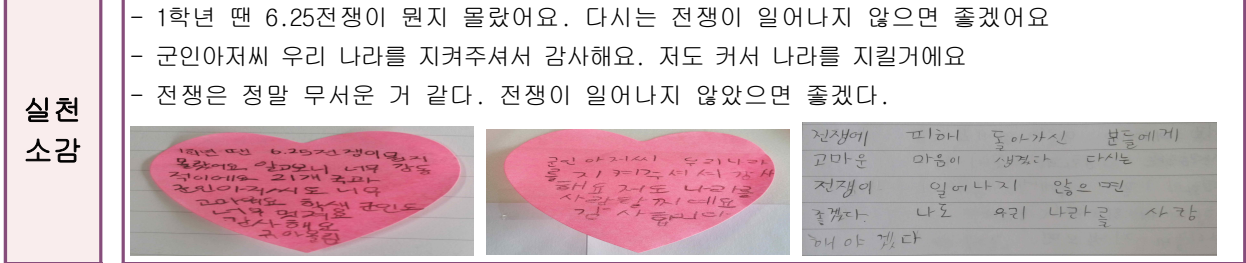 실천
소감
- 1학년 땐 6.25전쟁이 뭔지 몰랐어요. 다시는 전쟁이 일어나지 않으면 좋겠어요
- 군인아저씨 우리 나라를 지켜주셔서 감사해요. 저도 커서 나라를 지킬거에요
- 전쟁은 정말 무서운 거 같다. 전쟁이 일어나지 않았으면 좋겠다.
1학년 때는 6.25전쟁이 뭔지
몰랐어요 알고보니 너무 감동
적이에요 21개 국과
군인아저씨도 너무
고마워요 학생 군인도
너무 멋져요
감사해요
군인아저씨 우리나라
를 지켜주셔서 감사
해요 저도 나라를
사랑할 께에요
감사합니다
전쟁에 피해 돌아가신 분들에게
고마운 마음이 생겼다 다시는
전쟁이 일어나지 않으면
좋겠다. 나도 우리 나라를 사랑
해야겠다